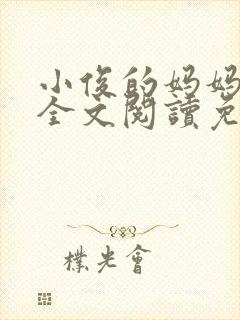 小俊的妈妈
全文閱讀免
樸光會